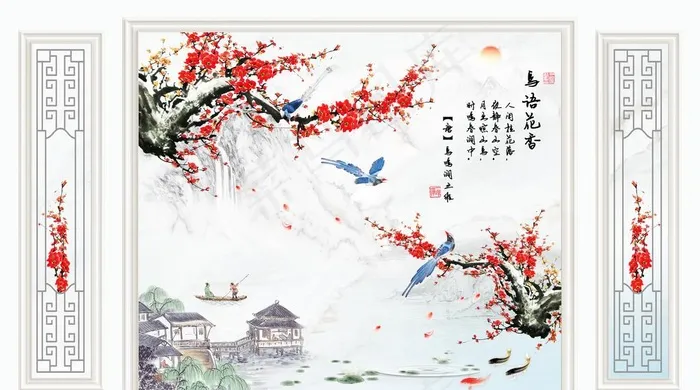 鸟语花香
人闲桂花落,
夜静春山空。
月出惊山鸟,
时鸣春涧中。
【唐】鸟鸣涧 王维